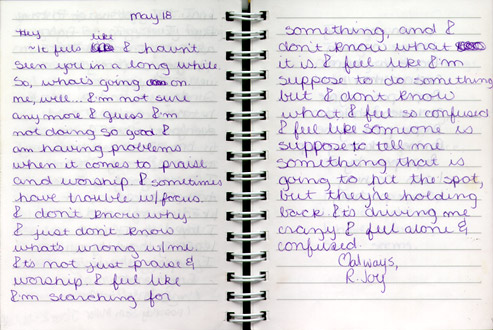 May 18
Hey,
~It feels like I havn't
seen you in a long while.
So, whats going on
me, well... I'm not sure
any more I guess I'm
not doing so good I
am having problems
when it comes to praise
and worship. I sometimes
have trouble w/focus.
I don't know why
I just don't know
what's wrong w/me.
It's not just praise &
worship. I feel like
I'm searching for
something, and I
don't know what
it is I feel like I'm
suppose to do something
but I don't know
what I feel so confused
I feel like someone is
suppose to tell me
something that is
going to hit the spot,
but they're holding
back. It's driving me
crazy I feel alone &
confused.
Always,
R. Joy